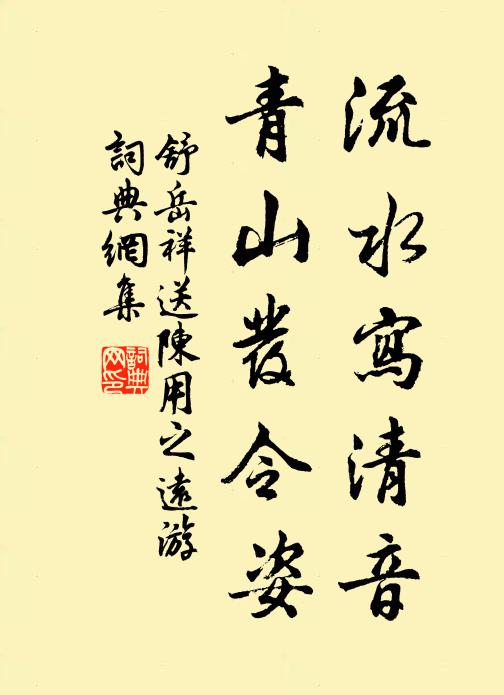 流水寫清音
青山發令姿
舒岳祥送陳用之遠游
詞典網集
詞典網印